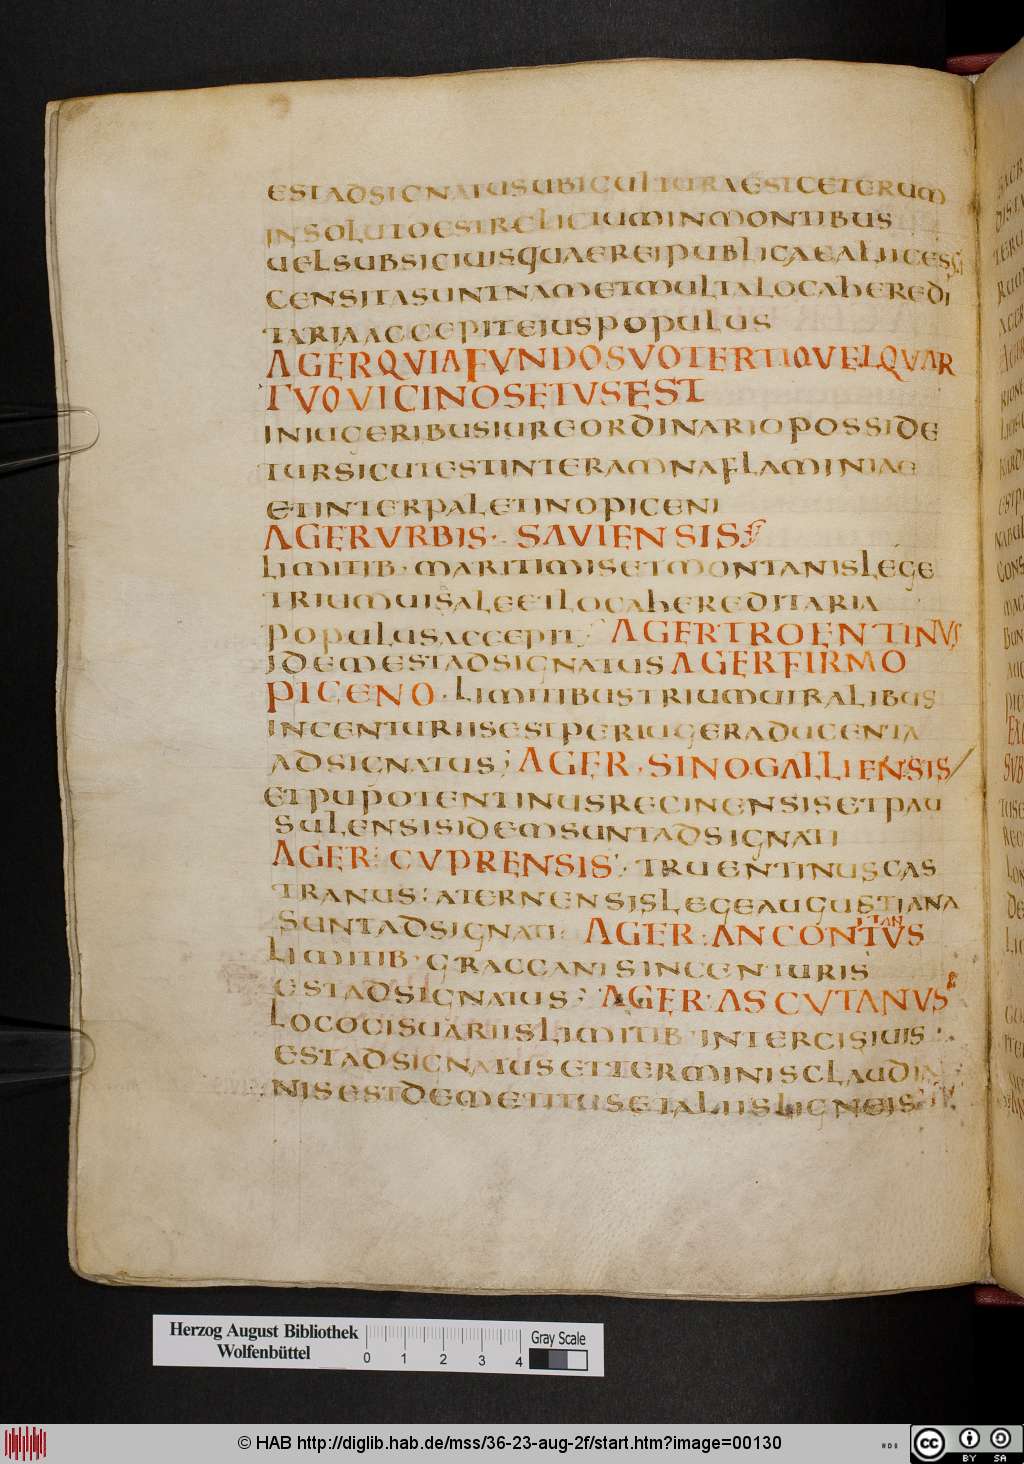 ESTADSIGNATUSUBICULTURAESTCETERUM
INSOLUTOESTRELICTUMINMONTIBUS
UELSUBSICIUISQUAEREIPUBLICAEALIICESSI
CENSITASUNTNAMETMULTALOCAHEREDI
TARIAACCEPITEIUSPOPULUS
AGERQVIAFVNDOSVOTERTIOVELQVAR
TVOVICINOSETVSEST
INIUGERIBUSIUREORDINARIOPOSSIDE
TURSICUTESTINTERAMNAFLAMINIAE
ETINTERPALETINOPICENI
AGERVRBIS· SAVIENSIS
LIMITIB·MARITIMISETMONTANISLEGE
TRIUMUISALEETLOCAHEREDITARIA
POPULUSACCEPIT; AGERTROENTINVS
IDEMESTADSIGNATUSAGERFIRMO
PICENO·LIMITIBUSTRIUMUIRALIBUS
INCENTURIISESTPERIUGERADUCENTA
ADSIGNATUS; AGER·SINOGALLIENSIS
ETPUPOTENTINUSRECINENSISETPAU
SULENSISIDEMSUNTADSIGNATI
AGER: CVPRENSIS: TRUENTINUSCAS
TRANUS: ATERNENSISLEGEAUGUSTIANA
SUNTADSIGNATI: AGER: ANCONTVS
ITAN
LIMITIB·GRACCANISINCENTURIS
ESTADSIGNATUS; AGER·ASCVTANVS
LOCOCISUARIISLIMITIB·INTERCISIUIS
ESTADSIGNATUSETTERMINISCLAUDIA
NISESTDEMETITUSETALIISLIGNEIS
Herzog August Bibliothek
Wolfenbüttel
0 1 2 3 4
Gray Scale
© HAB http://diglib.hab.de/mss/36-23-aug-2f/start.htm?image=00130
cc BY SA